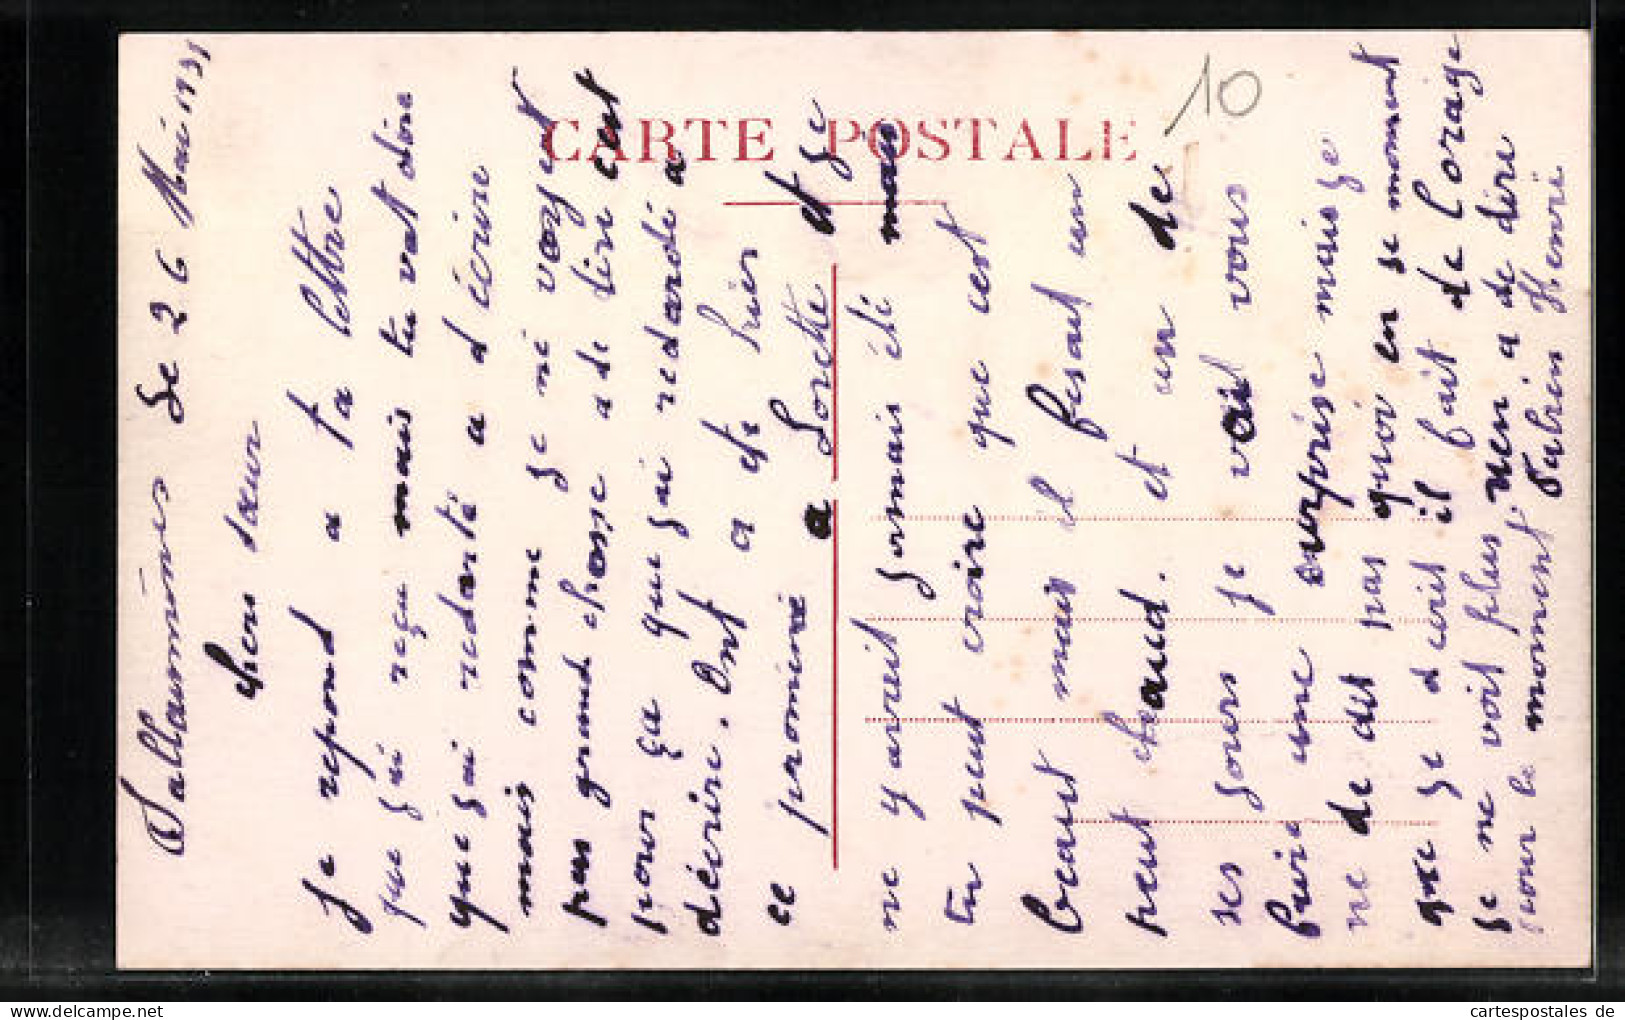 CARTE POSTALE
10
Sallaumines Le 26 Mai 1931
chers sœur
Je repond a ta lettre
que gai reçu mais tu vat dire
que gai redarté a d écrire
mais comme ge né voyet
pas grand chosse a de dire cest
pour ça que gai redardé a
décrire. Ont a eté hier
ce promené a Lorette et ge
ne y avait gamais été mais
tu peut croire que cest
beaut mais il fesait un
peut chaud. et un de
ses gours je vait vous
faire une surprise mais ge
ne de dit pas quoi en se moment
que ge d'cris il fait de l'oraige
ge ne voit plus rien a de dire
pour le momment Henrie
cartespostales de